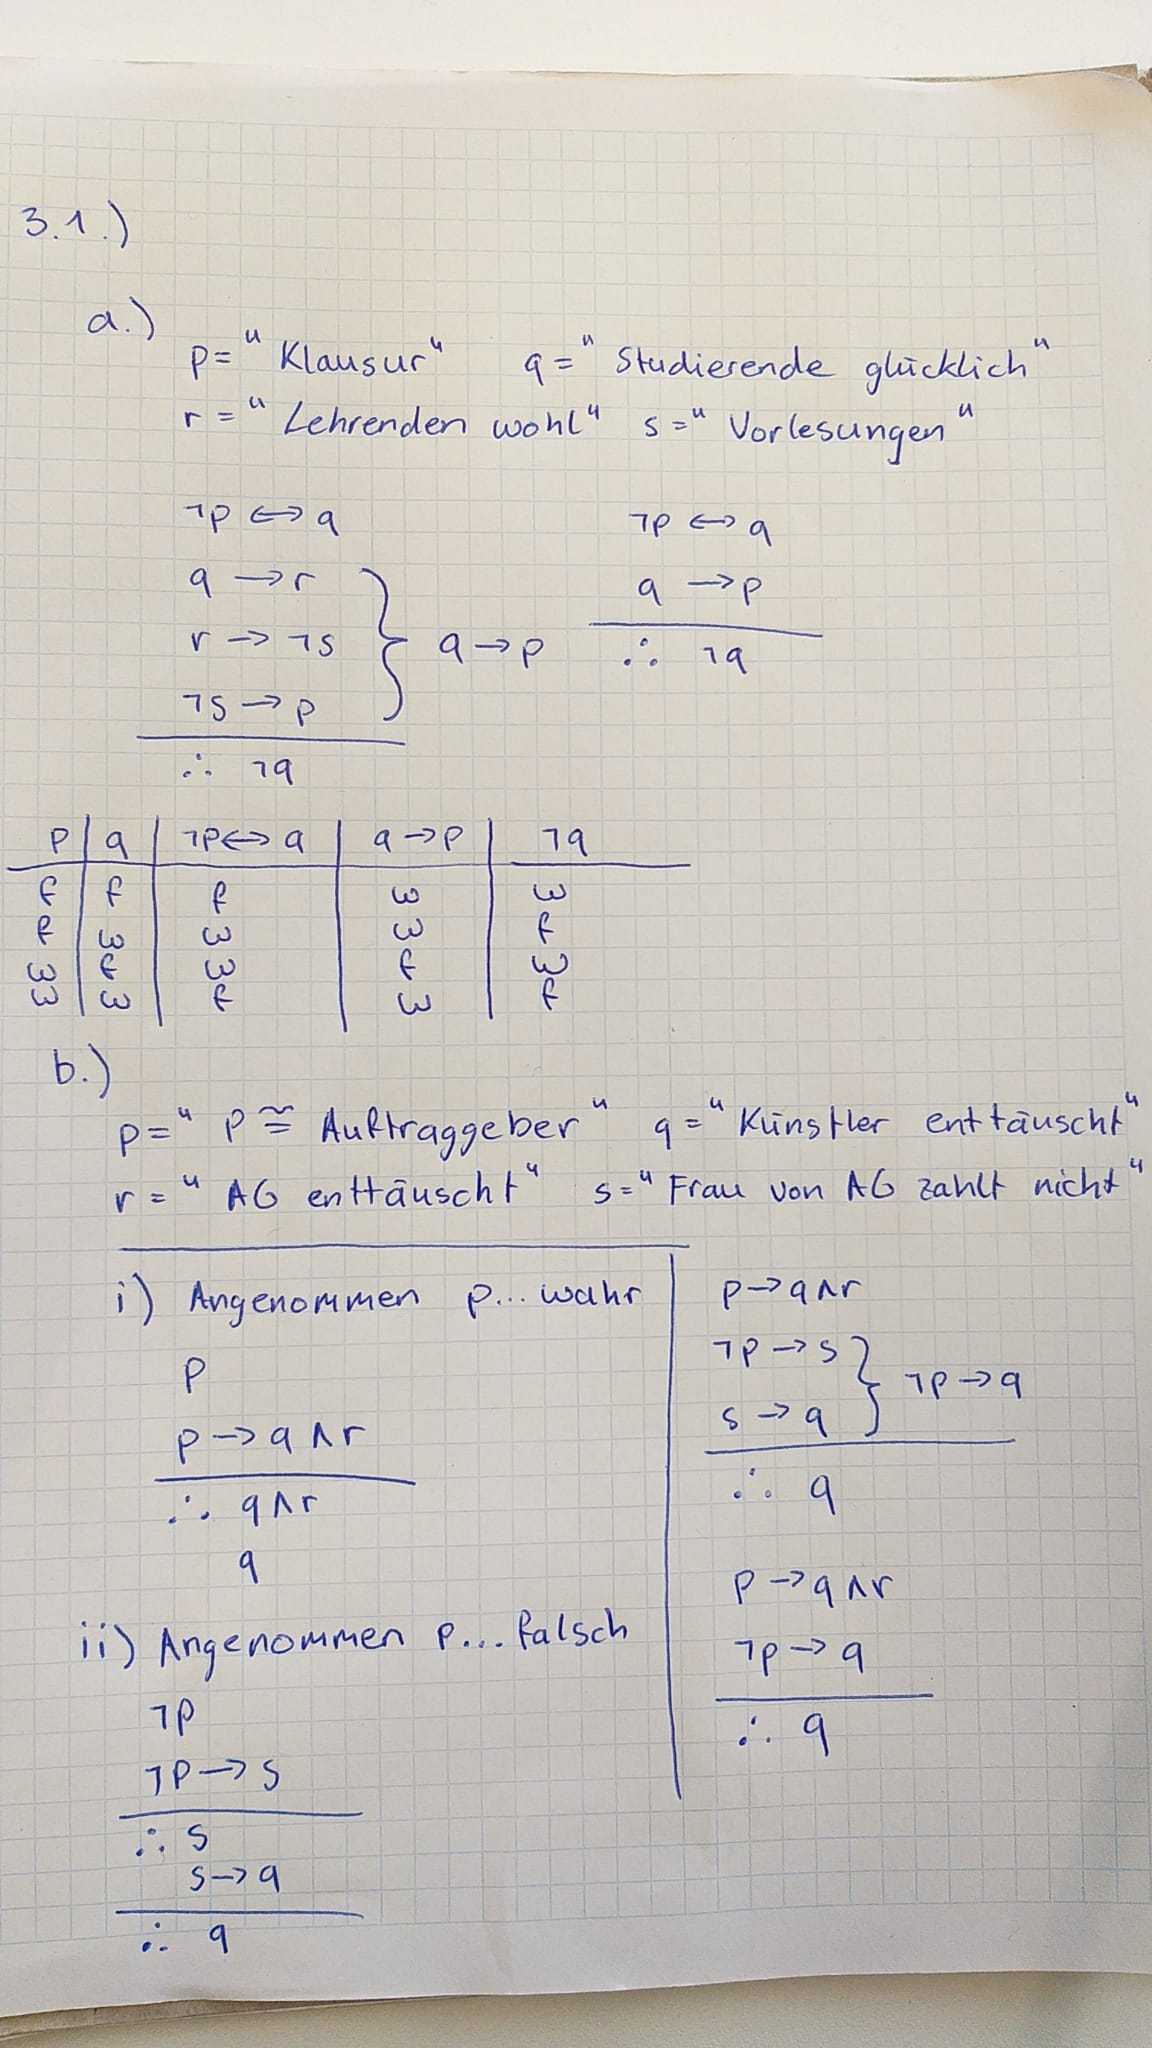 3.1.)
a.)
p=" Klausur" q=" Studierende glücklich"
r=" Lehrenden wohl" s=" Vorlesungen"
¬p ↔ q
q → r
r → ¬s } q → p
¬s → p
∴ ¬q
¬p ↔ q
q → p
∴ ¬q
p | q | ¬p ↔ q | q → p | ¬q
f | f | f | w | w
f | w | w | w | f
w | f | w | f | w
w | w | f | w | f
b.)
p=" p ≅ Auftraggeber" q=" Künstler enttäuscht"
r=" AG enttäuscht" s=" Frau von AG zahlt nicht"
i) Angenommen p... wahr
p
p → q ∧ r
∴ q ∧ r
q
ii) Angenommen p... falsch
¬p
¬p → s
∴ s
s → q
∴ q
p → q ∧ r
¬p → s } ¬p → q
s → q
∴ q
p → q ∧ r
¬p → q
∴ q